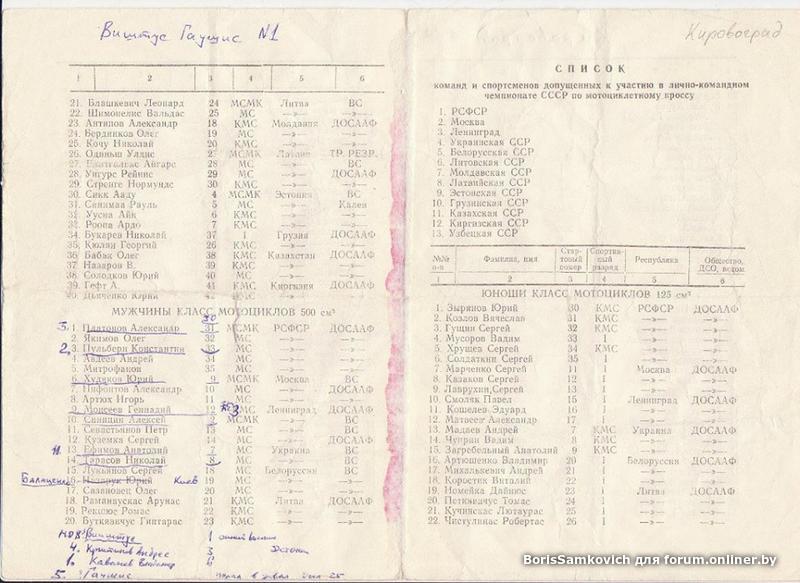 Виштус Гаущис №1
1 2 3 4 5 6
21. Блашкевич Леонард 24 МСМК Литва ВС
22. Шимонелис Вальдас 25 МС —»— —»—
23. Антипов Александр 18 КМС Молдавия ДОСААФ
24. Бердников Олег 19 МС —»— —»—
25. Кочу Николай 20 КМС —»— —»—
26. Одиньш Улдис МСМК Латвия ТР. РЕЗР.
27. Айгарс 28 МС —»— ВС
28. Унгурс Рейнис 29 МС —»— ДОСААФ
29. Стренге Нормундс 30 КМС —»— —»—
30. Сикк Ааду 4 МСМК Эстония ВС
31. Синимаа Рауль 5 МС —»— Калев
32. Уусна Айк 6 КМС —»— —»—
33. Роопа Ардо 7 КМС —»— —»—
34. Букарев Николай 37 I Грузия ДОСААФ
35. Кюлян Георгий 26 КМС —»— —»—
36. Бабак Олег 38 КМС Казахстан ДОСААФ
37. Назаров В. 39 КМС —»— —»—
38. Солодков Юрий 40 МС —»— —»—
39. Гефт А. 41 КМС Киргизия ДОСААФ
40. Дьяченко Юрий —»— —»—
МУЖЧИНЫ КЛАСС МОТОЦИКЛОВ 500 см³
30
5. 1. Платонов Александр 31 МСМК РСФСР ДОСААФ
2. Якимов Олег 32 МС —»— —»—
2. 3. Пульберн Константин 33 МС —»— —»—
4. Авдеев Андрей 34 МС —»— —»—
5. Митрофанов 35 МС —»— —»—
6. Худяков Юрий 9 МСМК Москва ВС
7. Нифонтов Александр 10 МС —»— ДОСААФ
8. Артюх Игорь 11 МС —»— ВС
9. Моисеев Геннадий 12 3 МС Ленинград ДОСААФ
10. Синицин Алексей 2 МСМК —»— ВС
11. Севастьянов Петр 13 МС —»— ВС
12. Куземка Сергей 14 МС —»— ДОСААФ
11. 13. Ефимов Анатолий 7 МС Украина ВС
14. Тарасов Николай 8 МС —»— ВС
15. Лукьянов Сергей 18 МС Белоруссия ВС
16. Назарук Юрий Киев 19 МС —»— —»—
17. Сазановец Олег 20 МС —»— —»—
18. Раманаускас Арунас 21 КМС Литва ДОСААФ
19. Рекстос Ромас 22 КМС —»— —»—
20. Буткявичус Гинтарас 23 КМС —»— —»—
Виштус 1
4. Кристинов Андрес 3 Эстония
1. Кавалев Владимир 6
5. Гаущис
Кировоград
СПИСОК
команд и спортсменов допущенных к участию в лично-командном
чемпионате СССР по мотоциклетному кроссу
1. РСФСР
2. Москва
3. Ленинград
4. Украинская ССР
5. Белорусская ССР
6. Литовская ССР
7. Молдавская ССР
8. Латвийская ССР
9. Эстонская ССР
10. Грузинская ССР
11. Казахская ССР
12. Киргизская ССР
13. Узбецкая ССР
№№ п-п Фамилия, имя Стартовый номер Спортивный разряд Республика Общество, ДСО, ведом
1 2 3 4 5 6
ЮНОШИ КЛАСС МОТОЦИКЛОВ 125 см³
1. Зырянов Юрий 30 КМС РСФСР ДОСААФ
2. Козлов Вячеслав 31 КМС —»— —»—
3. Гущин Сергей 32 КМС —»— —»—
4. Мусоров Вадим 33 I —»— —»—
5. Хрущев Сергей 34 КМС —»— —»—
6. Солдаткин Сергей 35 I —»— —»—
7. Марченко Сергей 11 I Москва ДОСААФ
8. Казаков Сергей 12 I —»— —»—
9. Лаврухин Сергей 13 I —»— —»—
10. Смоляк Павел 15 I Ленинград ДОСААФ
11. Кошелев Эдуард 16 I —»— —»—
12. Матвеев Александр 17 I —»— —»—
13. Мадаев Андрей 7 КМС Украина ДОСААФ
14. Чуприн Вадим 8 КМС —»— —»—
15. Загребельный Анатолий 9 КМС —»— —»—
16. Артюшенко Владимир 20 I Белоруссия ДОСААФ
17. Михалькевич Андрей 21 I —»— —»—
18. Коростик Виталий 22 I —»— —»—
19. Номейка Дайнюс 23 I Литва ДОСААФ
20. Петкявичус Томас 24 I —»— —»—
21. Кучинскас Лютаурас 25 I —»— —»—
22. Чистулинас Робертас 26 I —»— —»—
BorisSamkovich для forum.onliner.by